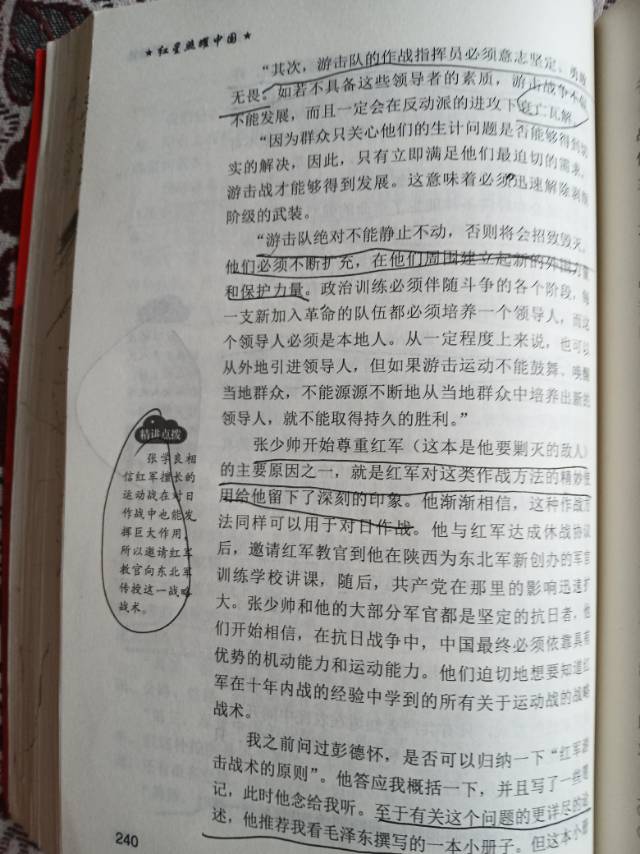 ★ 红星照耀中国 ★
“其次，游击队的作战指挥员必须意志坚定、勇敢
无畏。如若不具备这些领导者的素质，游击战争不但
不能发展，而且一定会在反动派的进攻下衰亡瓦解。
“因为群众只关心他们的生计问题是否能够得到切
实的解决，因此，只有立即满足他们最迫切的需求，
游击战才能够得到发展。这意味着必须迅速解除剥削
阶级的武装。
“游击队绝对不能静止不动，否则将会招致毁灭。
他们必须不断扩充，在他们周围建立起新的外围力量
和保护力量。政治训练必须伴随斗争的各个阶段，每
一支新加入革命的队伍都必须培养一个领导人，而这
个领导人必须是本地人。从一定程度上来说，也可以
从外地引进领导人，但如果游击运动不能鼓舞、唤醒
当地群众，不能源源不断地从当地群众中培养出新的
领导人，就不能取得持久的胜利。”
张少帅开始尊重红军（这本是他要剿灭的敌人）
的主要原因之一，就是红军对这类作战方法的精妙使
用给他留下了深刻的印象。他渐渐相信，这种作战方
法同样可以用于对日作战。他与红军达成休战协议
后，邀请红军教官到他在陕西为东北军新创办的军官
训练学校讲课，随后，共产党在那里的影响迅速扩
大。张少帅和他的大部分军官都是坚定的抗日者，他
们开始相信，在抗日战争中，中国最终必须依靠具有
优势的机动能力和运动能力。他们迫切地想要知道红
军在十年内战的经验中学到的所有关于运动战的战略
战术。
我之前问过彭德怀，是否可以归纳一下“红军游
击战术的原则”。他答应我概括一下，并且写了一些笔
记，此时他念给我听。至于有关这个问题的更详尽的论
述，他推荐我看毛泽东撰写的一本小册子。但这本小册
精讲点拨
张学良相
信红军擅长的
运动战在对日
作战中也能发
挥巨大作用，
所以邀请红军
教官向东北军
传授这一战略
战术。
240